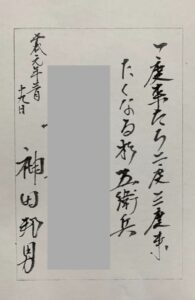 一度来たら二度三度来
たくなる杉五衛兵
平成元年
十九日
神田邦男